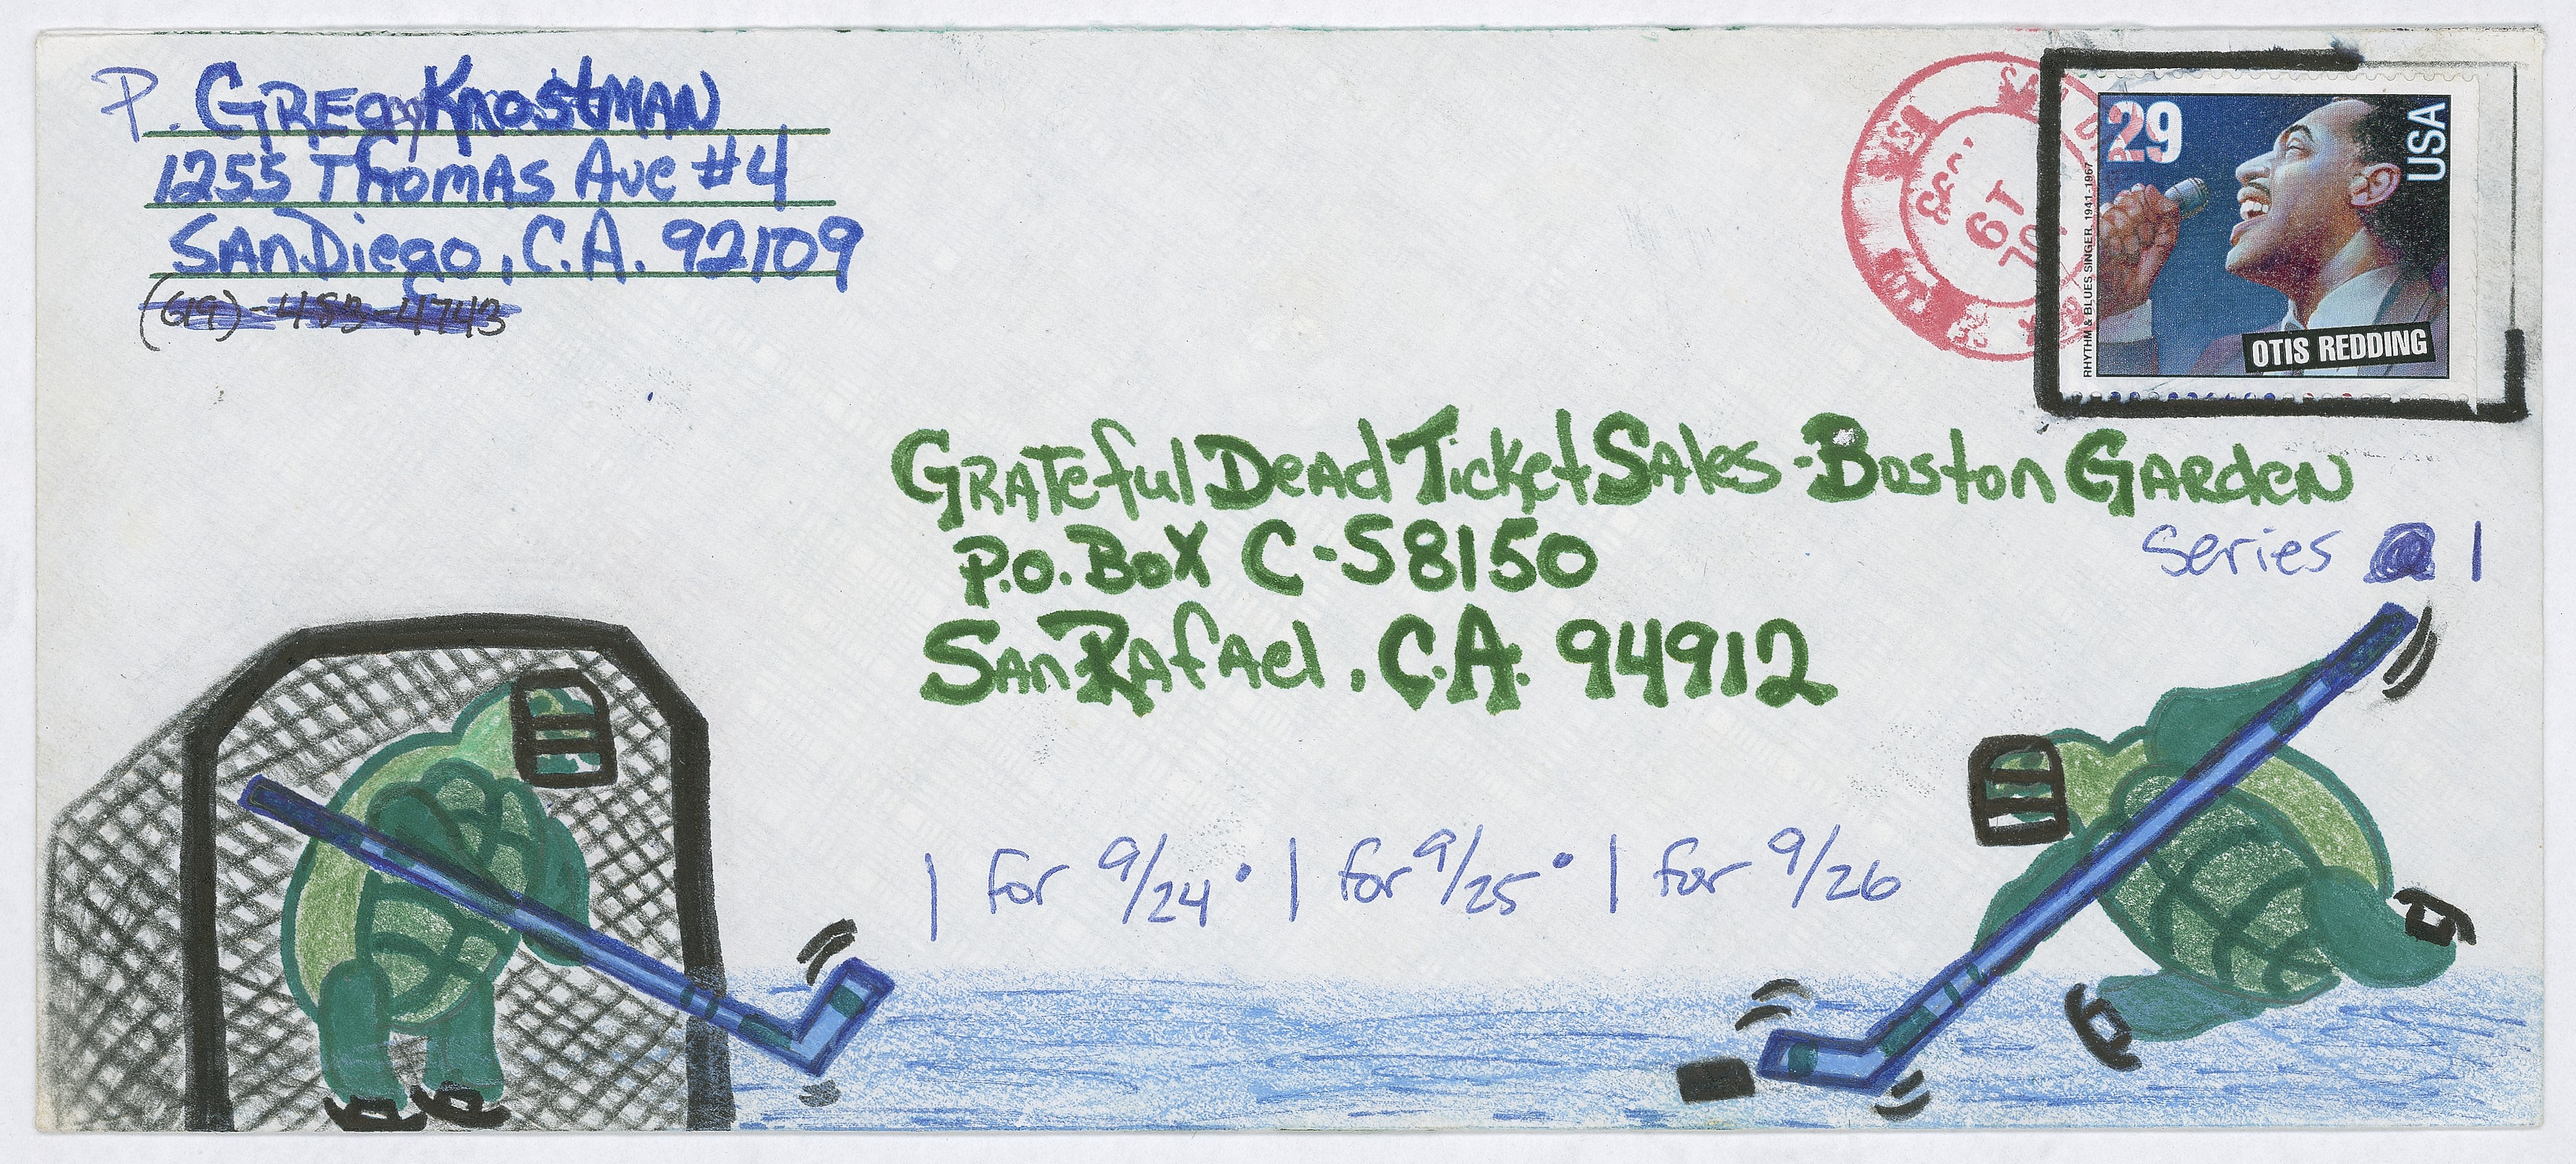 P. GREG KnostMAN
1255 Thomas Ave #4
SAN Diego, C.A. 92109
(619)-483-4743
29
USA
RHYTHM & BLUES SINGER, 1941-1967
OTIS REDDING
JUL
19
1993
GRATeful DeAd TickeT SAles - Boston GARdeN
P.O. BOX C-S8150
SAN RAfAel, C.A. 94912
Series 1
1 for 9/24 • 1 for 9/25 • 1 for 9/26